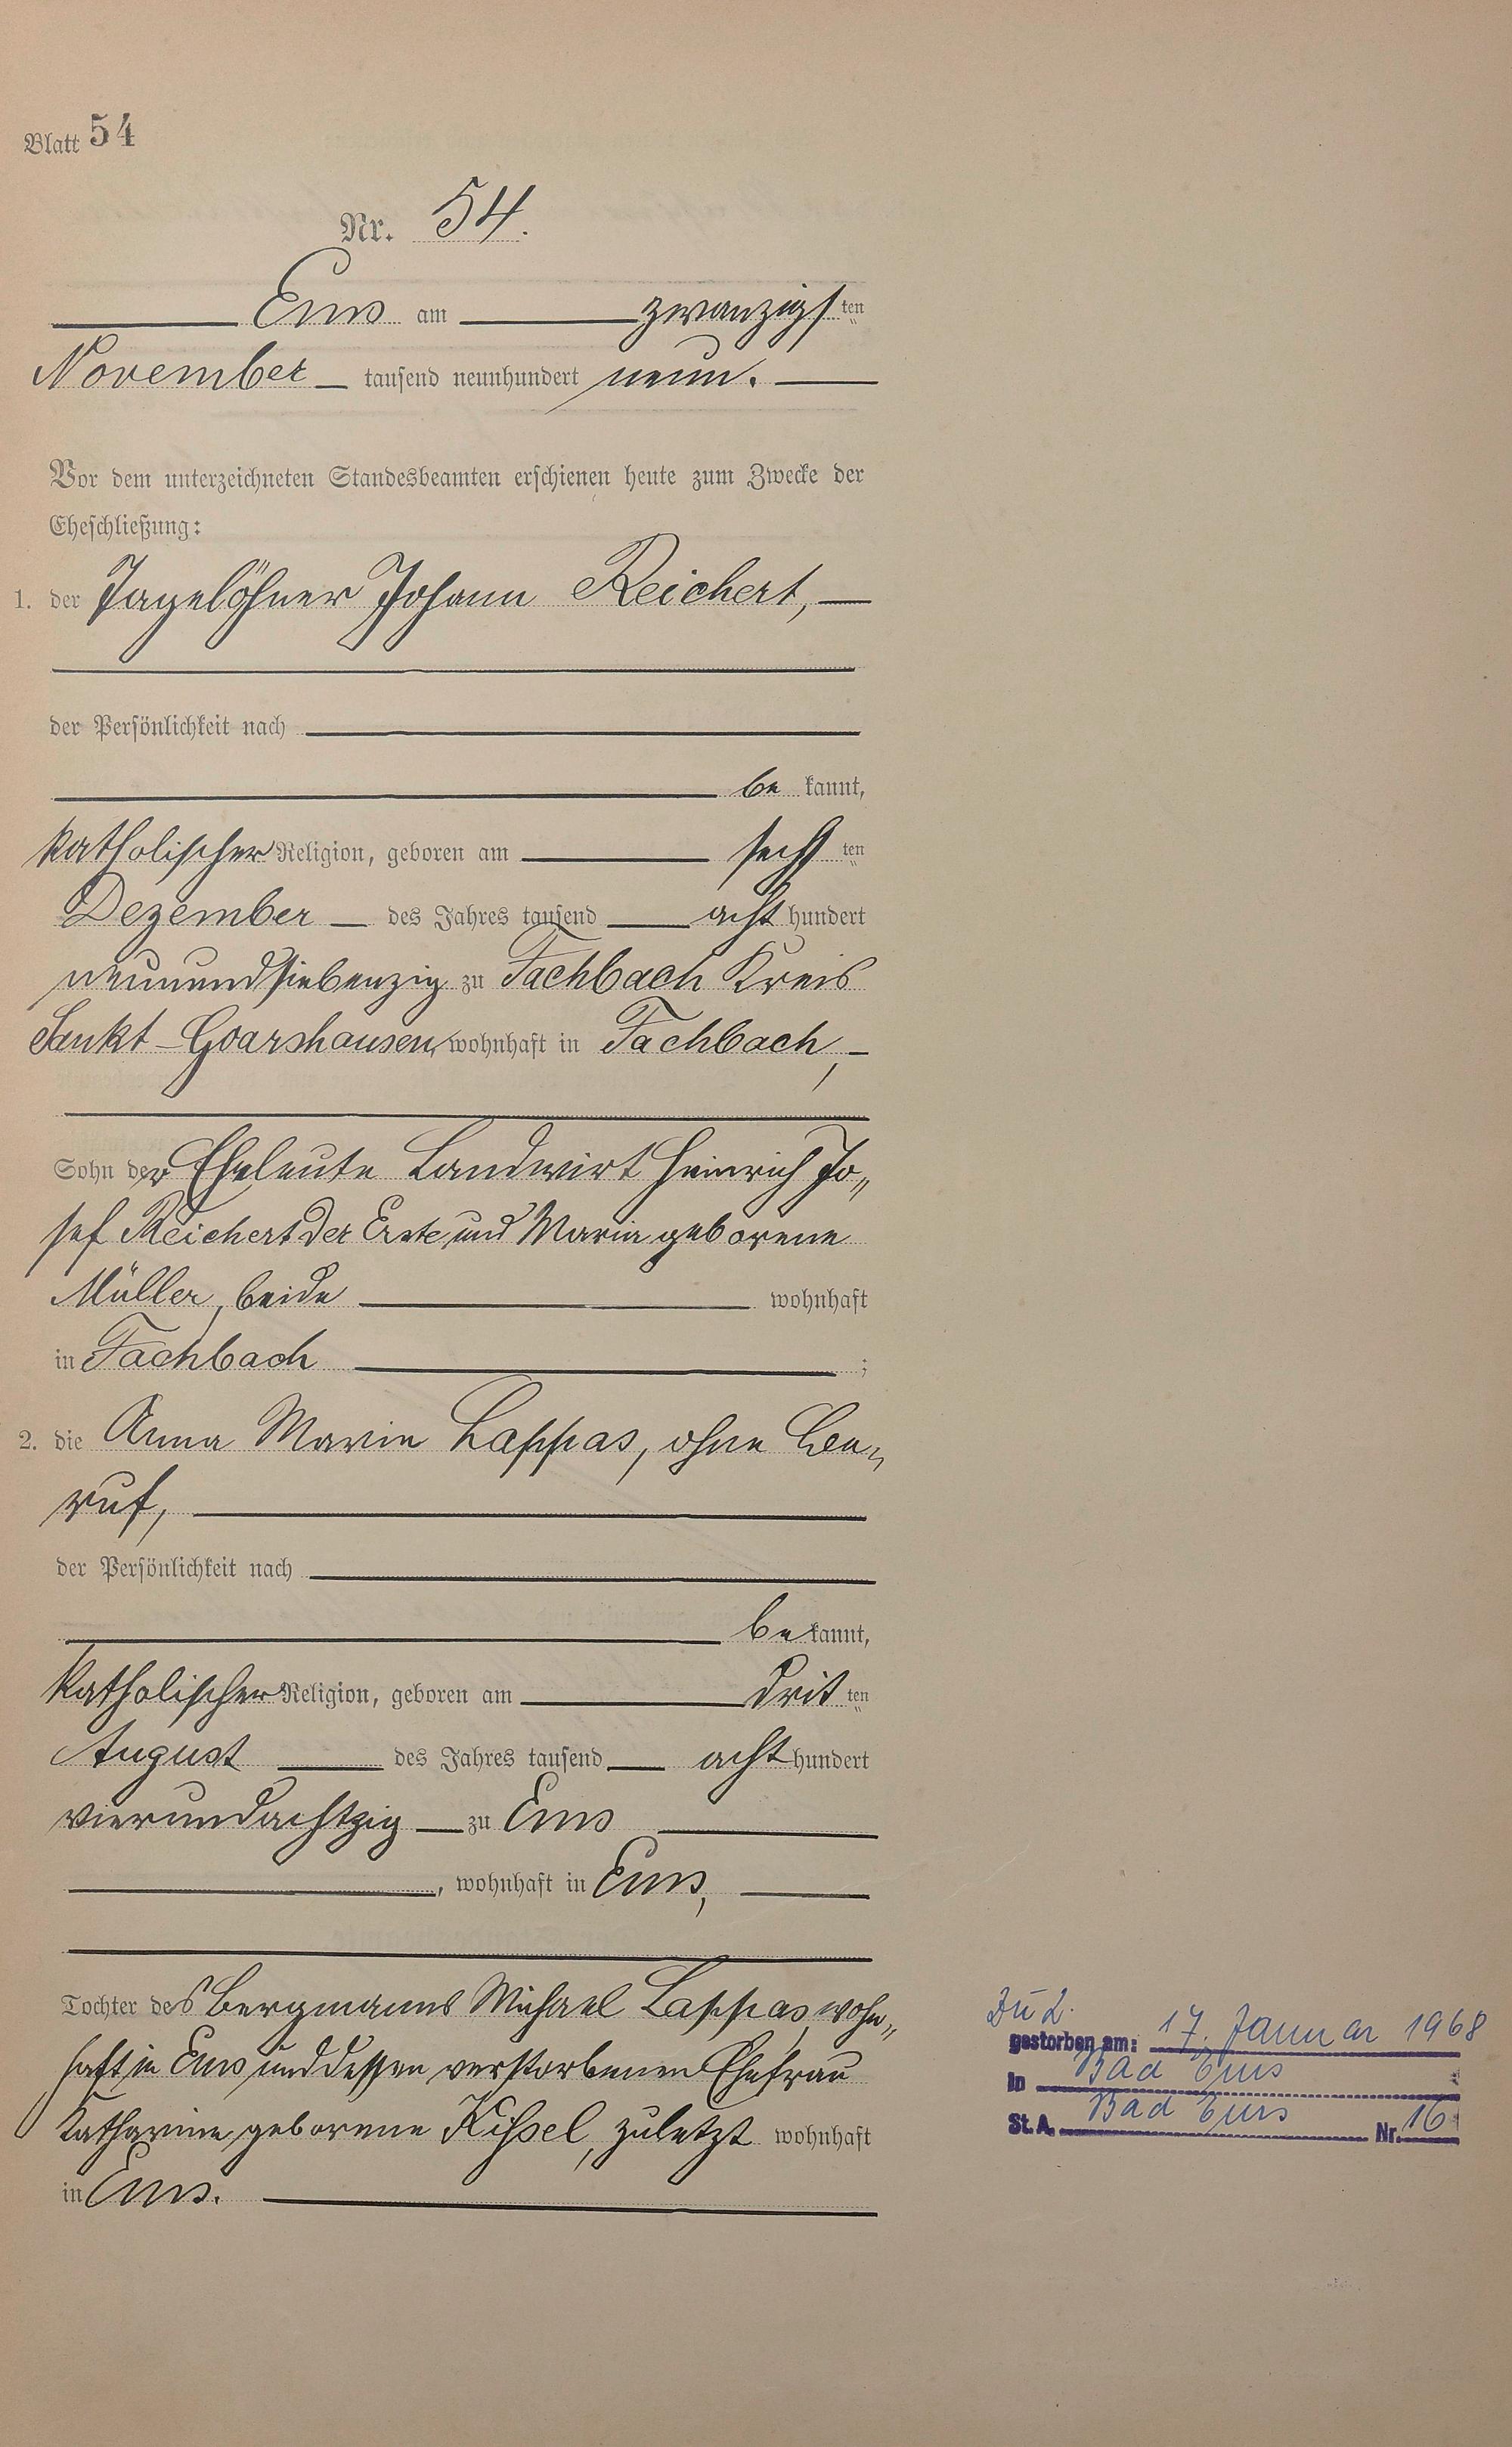 Blatt 54
Nr. 54.
Ems am zwanzigsten
November tausend neunhundert neun.
Vor dem unterzeichneten Standesbeamten erschienen heute zum Zwecke der
Eheschließung:
1. der Tagelöhner Johann Reichert,
der Persönlichkeit nach
be kannt,
katholischer Religion, geboren am sechsten
Dezember des Jahres tausend acht hundert
neunundsiebenzig zu Fachbach Kreis
Sankt-Goarshausen, wohnhaft in Fachbach,
Sohn der Eheleute Landwirt Heinrich Jo„
sef Reichert der Erste und Maria geborene
Müller, beide wohnhaft
in Fachbach ;
2. die Anna Maria Lappas, ohne Be„
ruf,
der Persönlichkeit nach
be kannt,
katholischer Religion, geboren am dritten
August des Jahres tausend acht hundert
vierundachtzig zu Ems
, wohnhaft in Ems,
Tochter des Bergmanns Michael Lappas, wohn„
haft in Ems und dessen verstorbenen Ehefrau
Katharina geborene Kissel, zuletzt wohnhaft
in Ems.
Zu 2.
gestorben am: 17. Januar 1968
in Bad Ems
St. A. Bad Ems Nr. 16